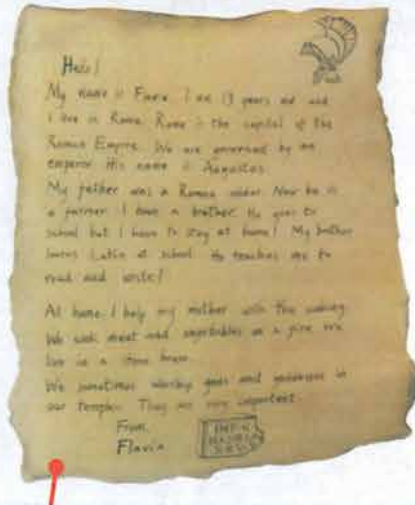 Hello!
My name is Flavia. I am 13 years old and
I live in Rome. Rome is the capital of the
Roman Empire. We are governed by an
emperor. His name is Augustus.
My father was a Roman soldier. Now he is
a farmer. I have a brother. He goes to
school but I have to stay at home! My brother
learns Latin at school. He teaches me to
read and write!
At home I help my mother with the cooking.
We cook meat and vegetables on a fire. We
live in a stone house.
We sometimes worship gods and goddesses in
our temples. They are very important.
From,
Flavia